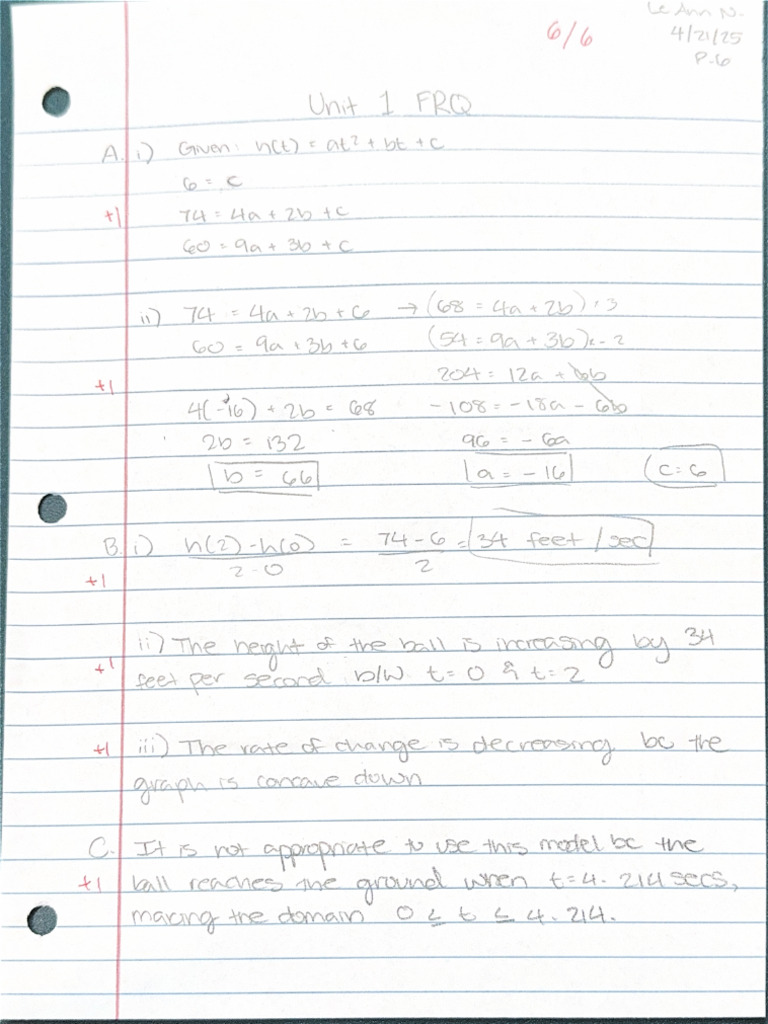 Le Ann N.
6/6
4/21/25
P-6
Unit 1 FRQ
A. i) Given: h(t) = at² + bt + c
6 = c
+1 74 = 4a + 2b + c
60 = 9a + 3b + c
ii) 74 = 4a + 2b + 6 → (68 = 4a + 2b) × 3
60 = 9a + 3b + 6 (54 = 9a + 3b) x - 2
204 = 12a + 6b
+1
4(-16) + 2b = 68 -108 = -18a - 6b
2b = 132 96 = - 6a
b = 66 a = - 16 c = 6
B. i) h(2) - h(0) / 2 - 0 = 74 - 6 / 2 = 34 feet / sec
+1
ii) The height of the ball is increasing by 34
+1 feet per second b/w t = 0 & t = 2
+1 iii) The rate of change is decreasing bc the
graph is concave down
C. It is not appropriate to use this model bc the
+1 ball reaches the ground when t = 4.214 secs,
making the domain 0 ≤ t ≤ 4.214.